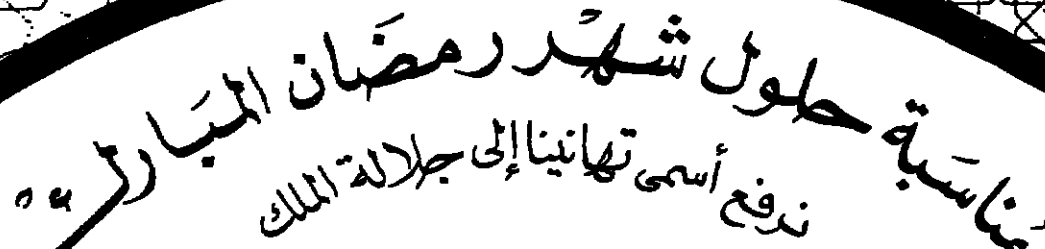 بمناسبة حلول شهر رمضان المبارك
نرفع أسمى تهانينا إلى جلالة الملك